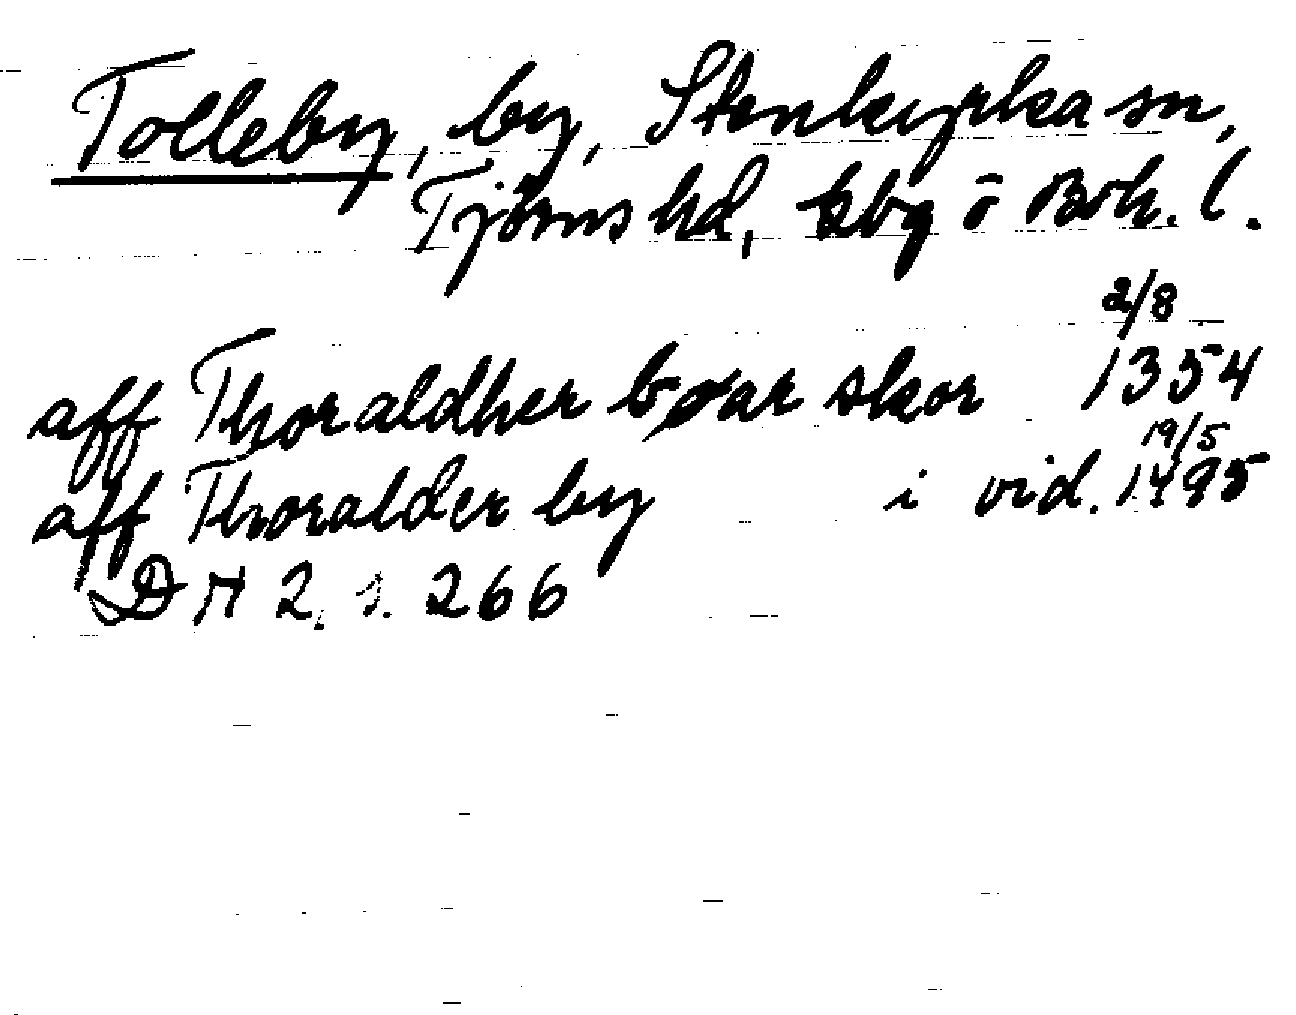 Tolleby, by, Stenkyrka sn,
Tjörns hd, Gbg o Boh. l.
2/8
aff Thoraldher bøar skor 1354
19/5
aff Thoralder by i vid. 1495
DN 2. s. 266